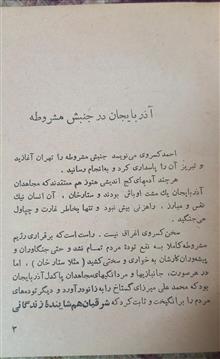 آذربایجان در جنبش مشروطه
احمد کسروی می‌نویسد جنبش مشروطه را تهران آغازید
و تبریز آن را پاسداری کرد و به‌انجام رسانید.
هر چند آدمهای کج اندیشی هنوز هم معتقدند که مجاهدان
آذربایجان یك مشت اوباش بودند و ستارخان، آن انسان نیك
نفس و مبارز، راهزنی بیش نبود و تنها بخاطر غارت و چپاول
می‌جنگید.
سخن کسروی اغراق نیست. راست است که برقراری رژیم
مشروطه کاملا به نفع تودهٔ مردم تمام نشد و حتی جنگاوران و
پیشروان کارشان به خواری و سختی کشید (مثلا ستار خان)، اما
در هر صورت، جانبازیها و مردانگیهای مجاهدان پاکدل آذربایجان
بود که محمد علی میرزای گستاخ را به زانو در آورد و دیگر توده‌های
مردم را برانگیخت و ثابت کرد که شرقیان هم شایندهٔ زندگانی
۳